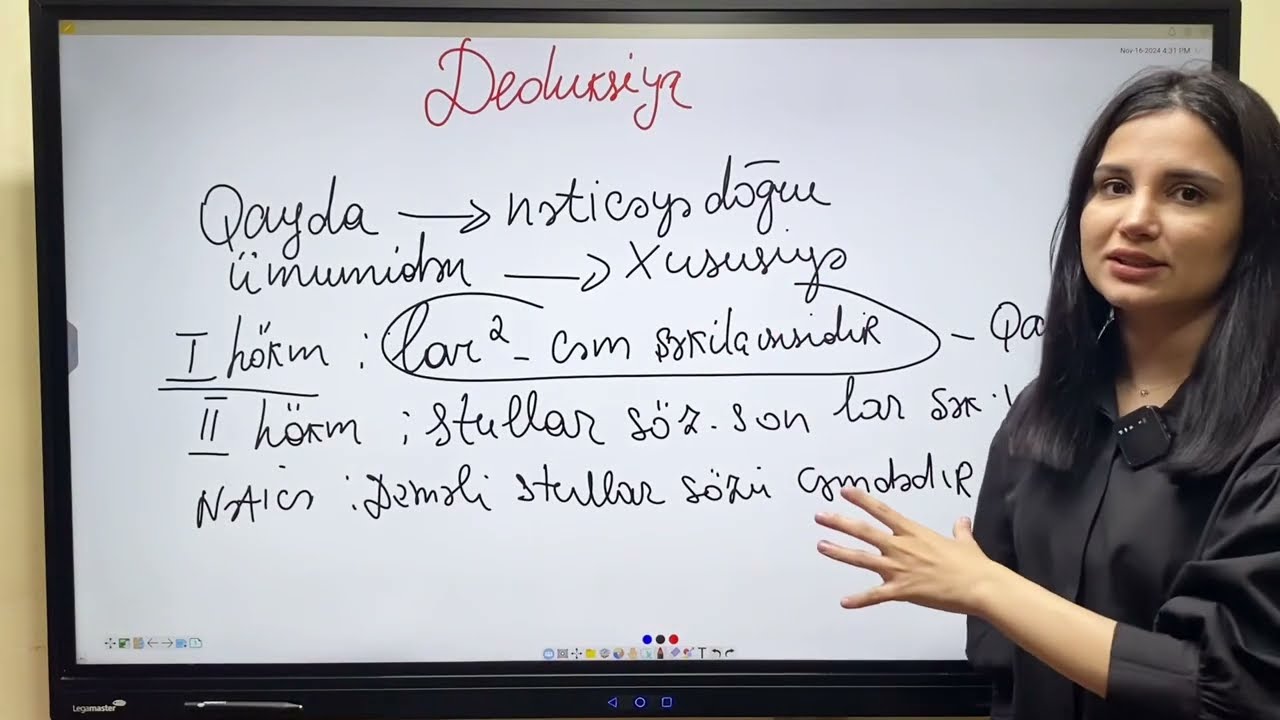 Nov-16-2024 4:31 PM
Deduksiya
Qayda → nəticəyə doğru
ümumidən → Xususiyə
I hökm : lar² - cəm şəkilçisidir - Qa
II hökm : stullar söz. son lar şək.
Nəticə : Deməli stullar sözü cəmdədir
Legamaster